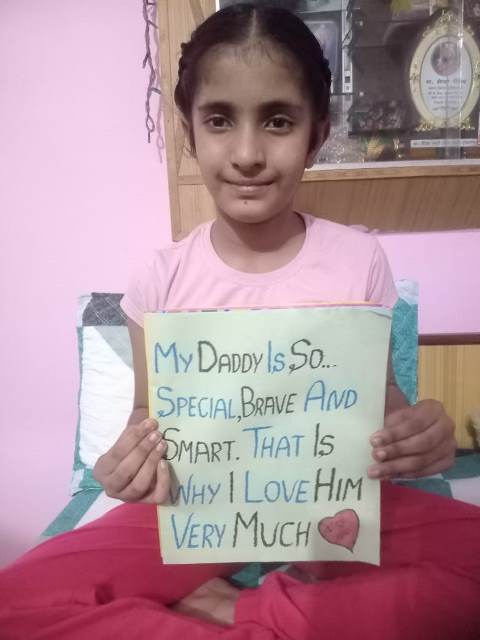 My Daddy Is So...
Special, Brave And
Smart. That Is
Why I Love Him
Very Much